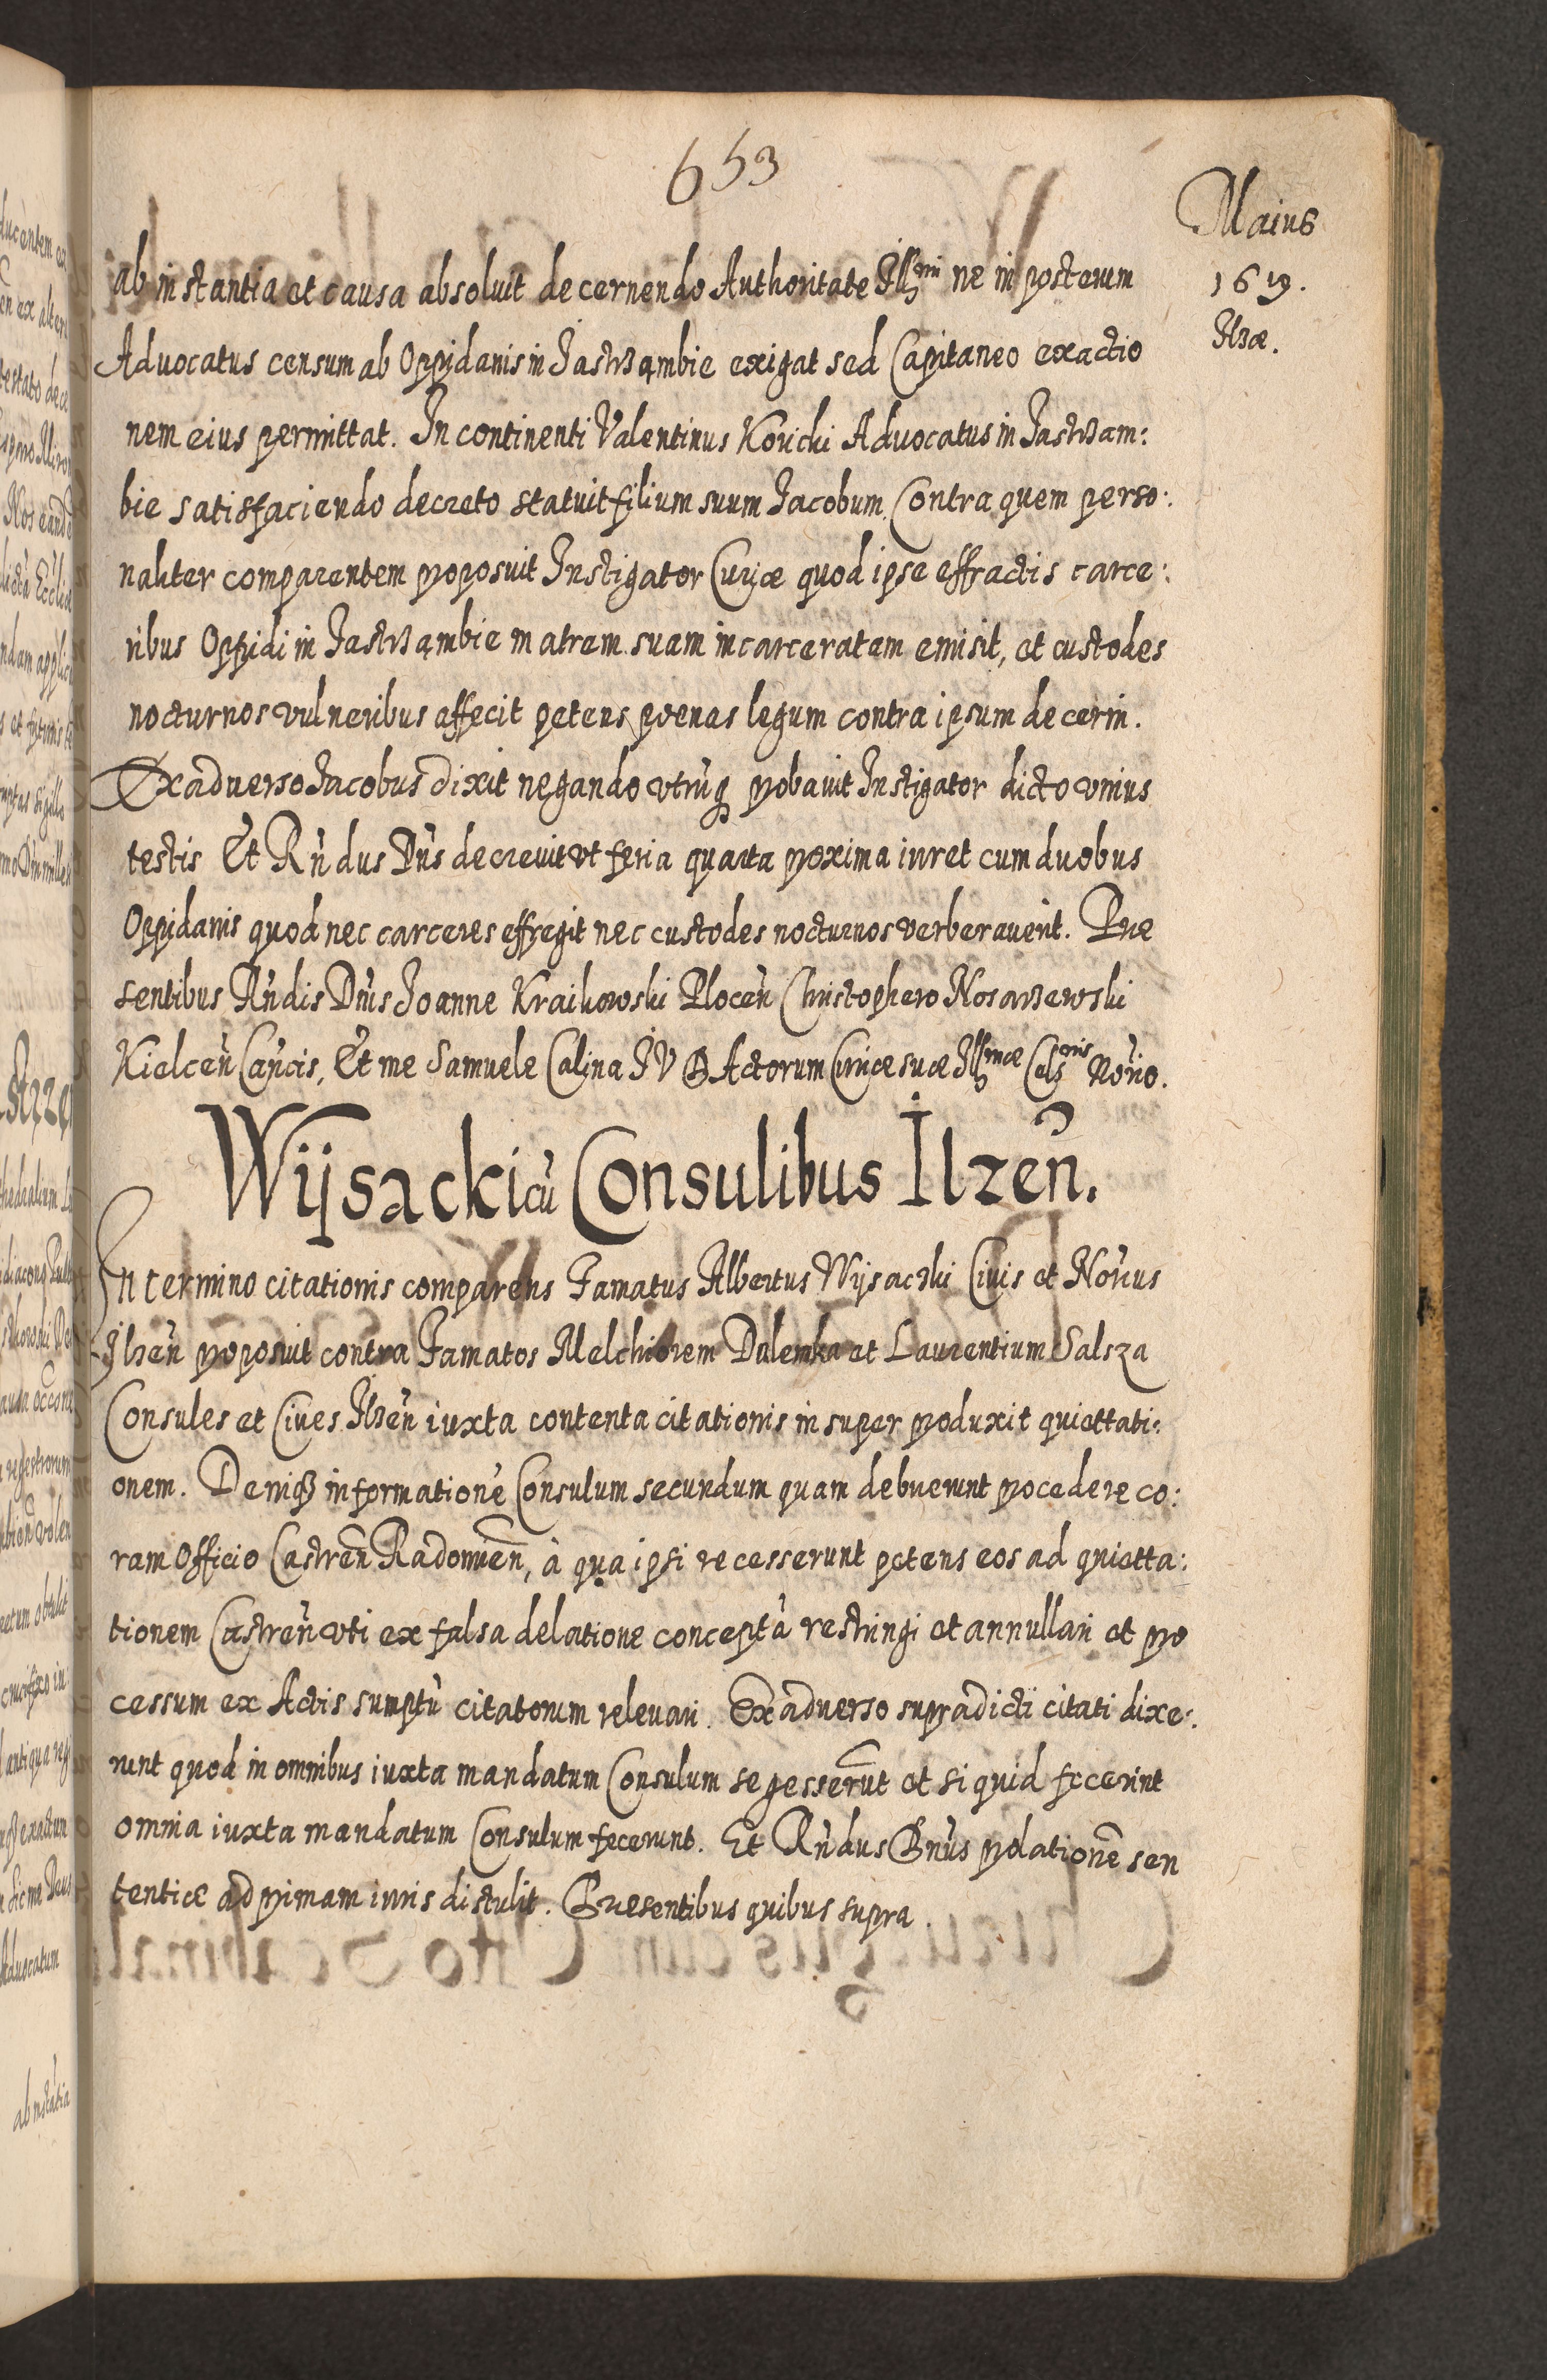 653
Maius
1619.
Ilzæ.
ab instantia et causa absoluit decernendo Authoritate Illmi ne in posterum
Advocatus censum ab Oppidanis in Jastrząmbie exigat sed Capitaneo exactio
nem eius permittat. In continenti Valentinus Koricki Advocatus in Jastrzam:
bie satisfaciendo decreto statuit filium suum Jacobum. Contra quem perso:
naliter comparentem proposuit Instigator Curiæ quod ipse effractis carce:
ribus Oppidi in Jastrząmbie matrem suam incarceratam emisit, et custodes
nocturnos vulneribus affecit petens poenas legum contra ipsum decerni.
Ex adverso Jacobus dixit negando utrũq probavit Instigator dicto unius
testis Et Rñdus Dñs decrevit ut feria quarta proxima iuret cum duobus
Oppidanis quod nec carceres effregit nec custodes nocturnos verberaverit. Præ
sentibus Rñdis Dñis Joanne Kraikowski Plocen̄ Christophero Nosarzewski
Kielcen̄ Cañcis, Et me Samuele Calina J V D Actorum Curiæ suæ Illmæ Celsnis Norio.
Wÿsackicũ Consulibus Ilzen̄.
In termino citationis comparens Famatus Albertus Wÿsaczki Civis et Noriũs
Ilzen̄ proposuit contra Famatos Melchiorem Dulemka et Laurentium Salsza
Consules et Cives Ilzen̄ iuxta contenta citationis insuper produxit quiettati:
onem. Deniq informationē Consulum secundum quam debuerunt procedere co:
ram Officio Castren̄ Radomien̄, à qua ipsi recesserunt petens eos ad quietta:
tionem Castren̄ uti ex falsa delatione conceptã restringi et annullari et pro
cessum ex Actis sumptũ citatorum relevari. Ex adverso supradicti citati dixe:
runt quod in omnibus iuxta mandatum Consulum se gesserũt et si quid fecerint
omnia iuxta mandatum Consulum fecerunt. Et Rñdus Dñus prolationẽ sen
tentiæ ad primam iuris distulit. Præsentibus quibus supra.